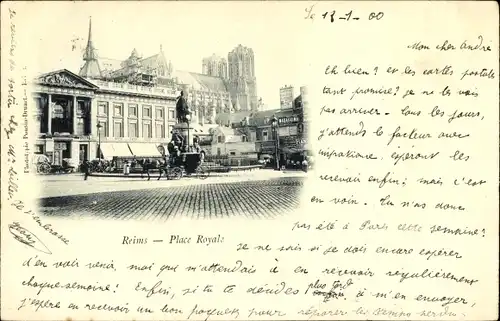 le 13-1-00
Mon cher Andre
Eh bien? et les cartes postales
tant promise? je ne les vois
pas arriver. Tous les jours,
j'attends le facteur avec
impatience, espérant les
recevoir enfin; mais c'est
en vain. Tu n'as donc
pas été à Paris cette semaine?
Je ne sais si je dois encore espérer
d'en voir venir, moi qui m'attendais à en recevoir régulièrement
chaque semaine! Enfin, si tu te décides plus tard à m'en envoyer,
j'espère en recevoir un bon peu pour réparer le temps perdu.
Reims — Place Royale
MAGASINS
Je t'embrasse